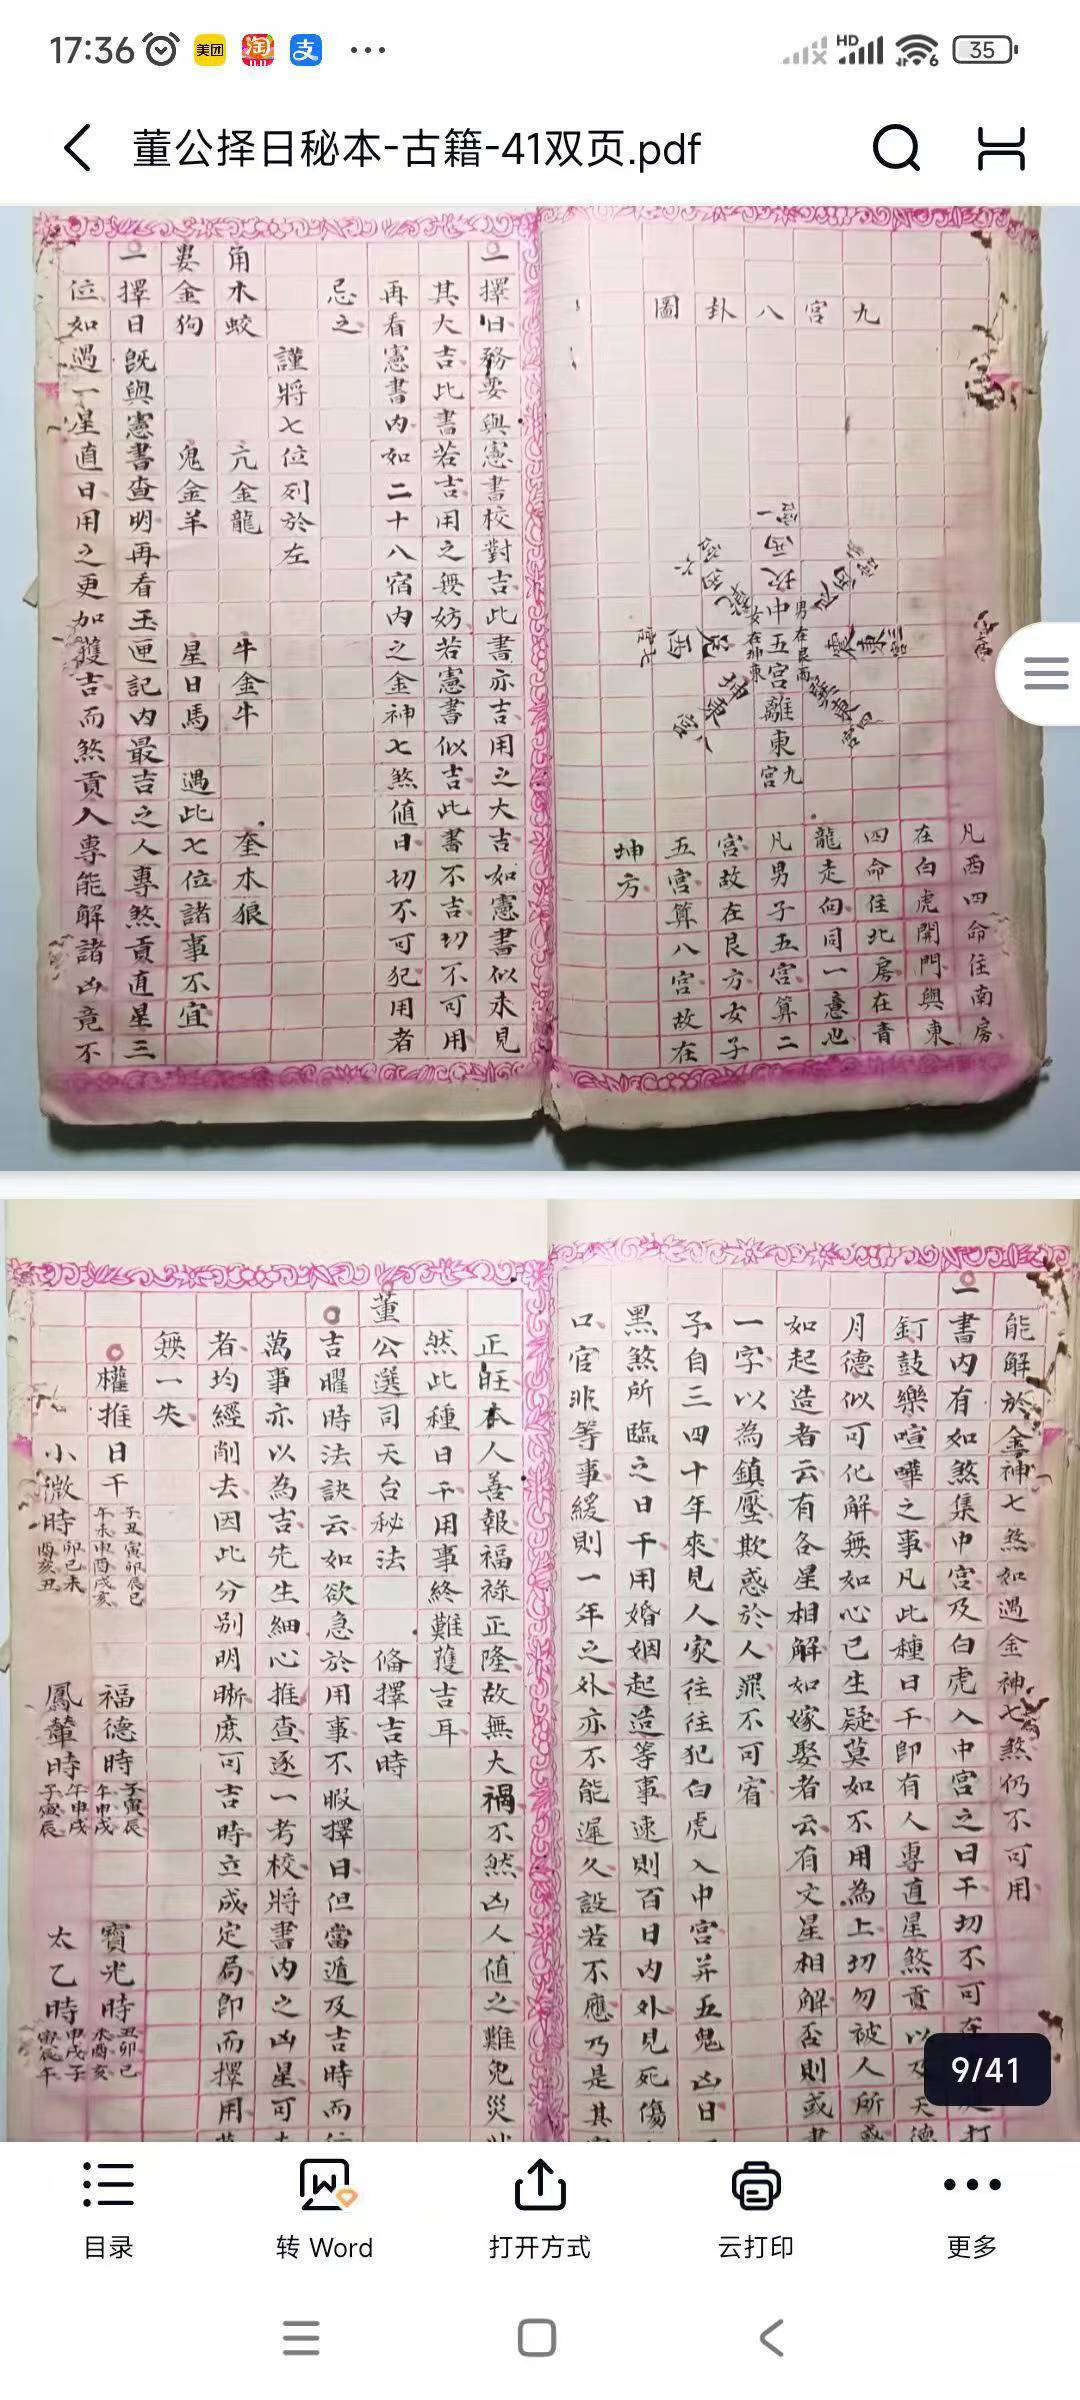 17:36
美团
淘
支
HD
6
35
董公择日秘本-古籍-41双页.pdf
九宮八卦圖
中五宮
男在艮南
女在坤東
離東
九宮
凡西四命住南房
在白虎開門與東
四命住北房在青
龍走向同一意也
凡男子五宮算二
宮故在艮方女子
五宮算八宮故在
坤方
一擇日務要與憲書校對吉此書亦吉用之大吉如憲書似未見
其大吉此書若吉用之無妨若憲書似吉此書不吉切不可用
再看憲書內如二十八宿內之金神七煞值日切不可犯用者
忌之
謹將七位列於左
角木蛟 亢金龍 牛金牛 奎木狼
婁金狗 鬼金羊 星日馬 遇此七位諸事不宜
一擇日既與憲書查明再看玉匣記內最吉之人專煞貢直星三
位如遇一星直日用之更加獲吉而煞貢人專能解諸凶竟不
能解於金神七煞如遇金神七煞仍不可用
一書內有如煞集中宮及白虎入中宮之日干切不可在
釘鼓樂喧嘩之事凡此種日干即有人專直星煞貢以及天德
月德似可化解無如心已生疑莫如不用為上切勿被人所惑
如起造者云有各星相解如嫁娶者云有文星相解否則或書
一字以為鎮壓欺惑於人罪不可宥
予自三四十年來見人家往往犯白虎入中宮并五鬼凶日
黑煞所臨之日干用婚姻起造等事速則百日內外見死傷
口官非等事緩則一年之外亦不能遲久設若不應乃是其
正旺本人善報福祿正隆故無大禍不然凶人值之難免災
然此種日干用事終難獲吉耳
董公選司天台秘法 俻擇吉時
吉曜時法訣云如欲急於用事不暇擇日但當遁及吉時而
萬事亦以為吉先生細心推查逐一考校將書內之凶星可
者均經削去因此分別明晰庶可吉時立成定局即而擇用
無一失
權推日干 子丑寅卯辰巳午未申酉戌亥 福德時 子寅辰午申戌 寶光時 丑卯巳未酉亥
小微時 卯巳未酉亥丑 鳳輦時 午申戌子寅辰 太乙時 申戌子寅辰午
9/41
目录
转 Word
打开方式
云打印
更多